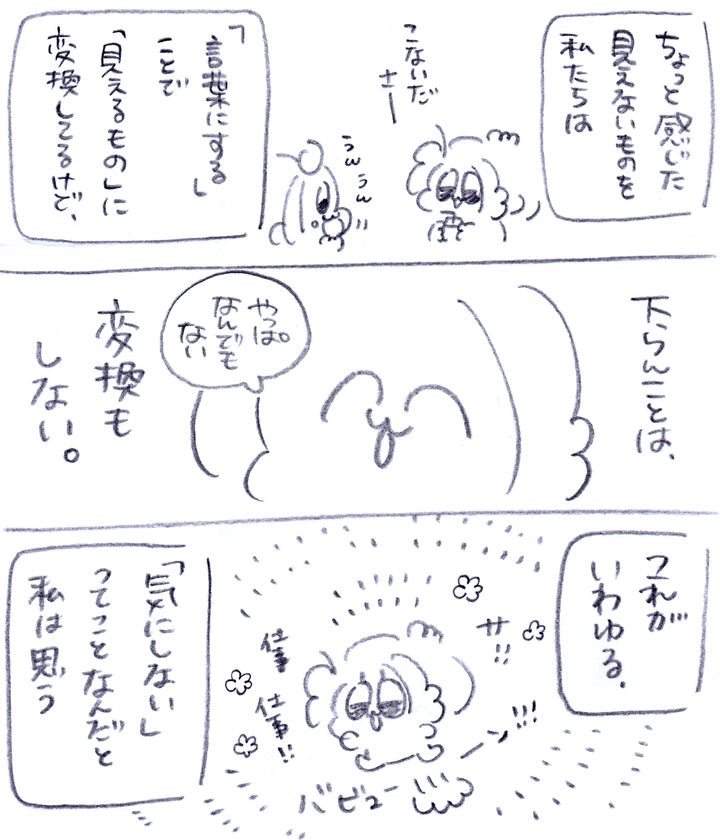 ちょっと感じた
見えないものを
私たちは
こないだ
さー
うんうん
「言葉にする」
ことで
「見えるもの」に
変換してるけど、
下らんことは、
やっぱ。
なんでも
ない
変換も
しない。
これが
いわゆる、
サ!!
ーン!!!
仕事
仕事!!
バビュー
「気にしない」
ってことなんだと
私は思う